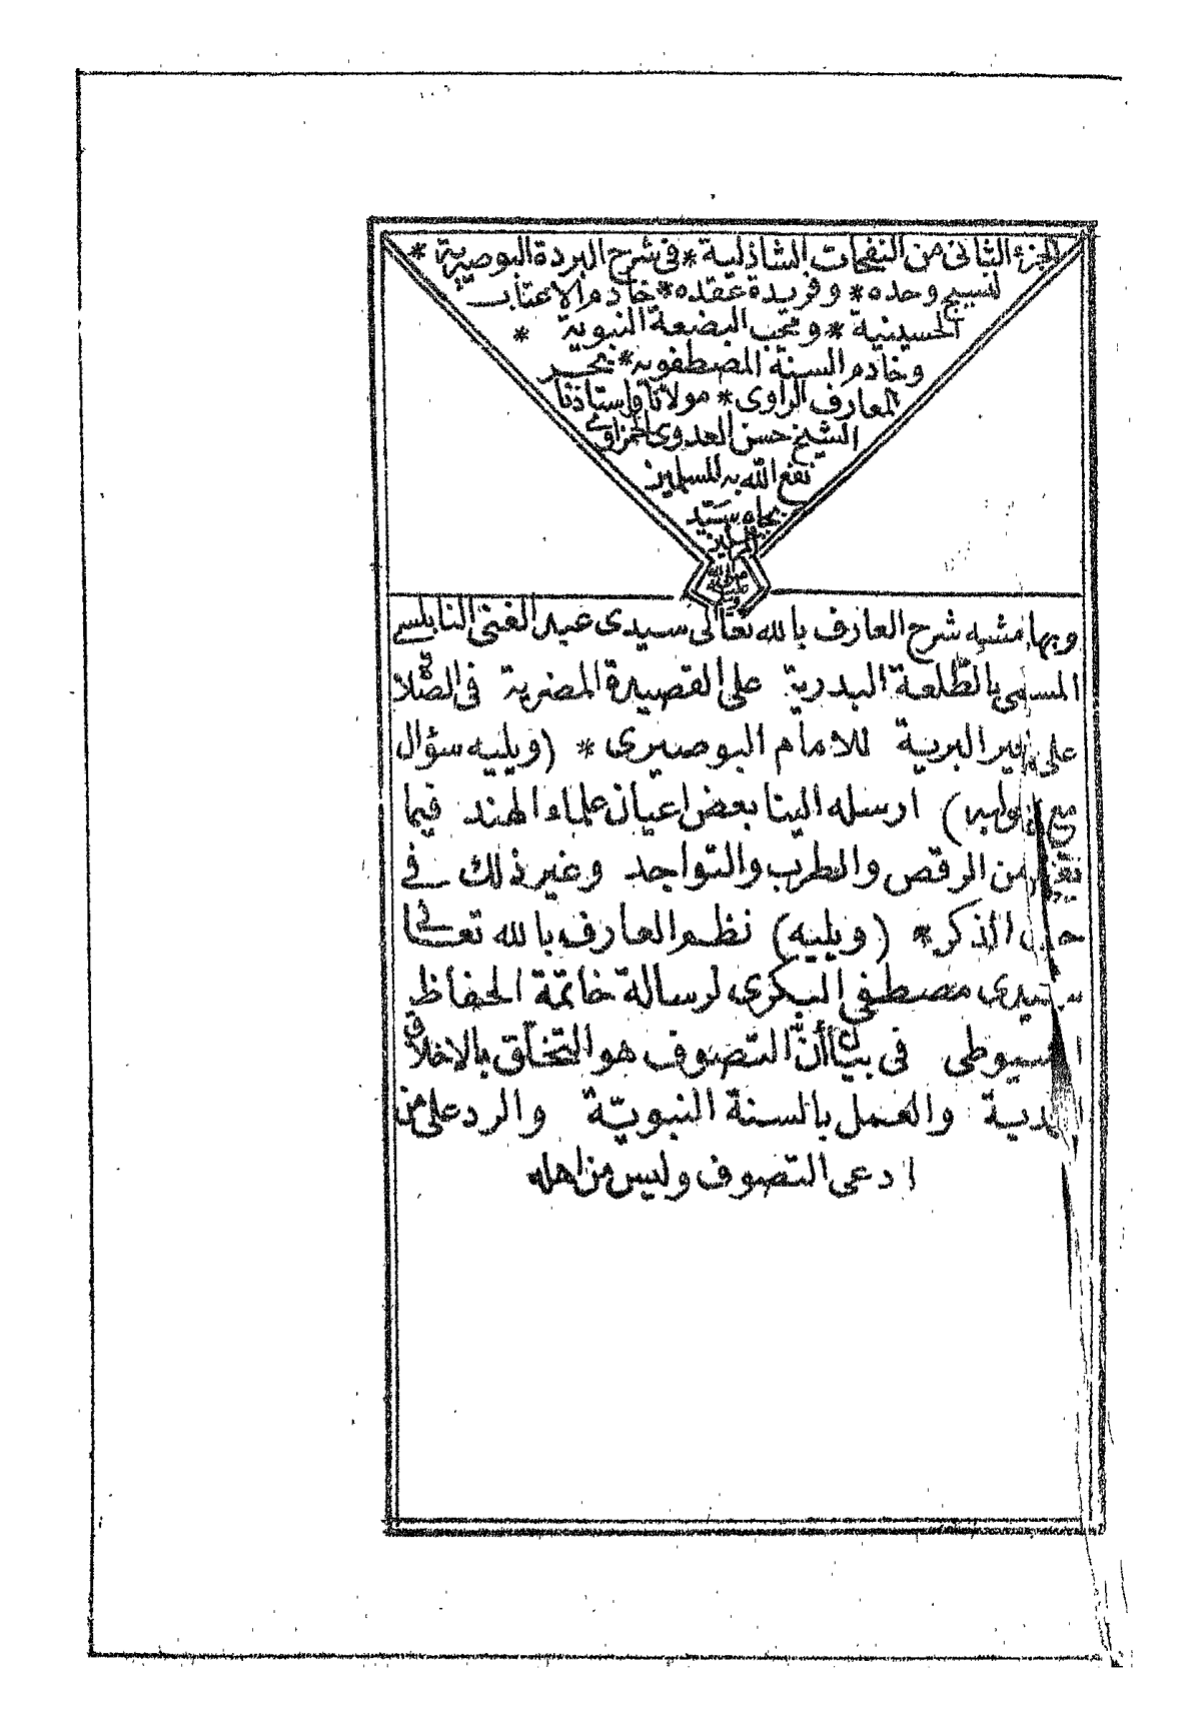 الجزء الثانى من النفحات الشاذلية * فى شرح البردة البوصيرية *
لنسيج وحده * وفريدة عقده * خادم الاعتاب
الحسينية * ومحب البضعة النبوية *
وخادم السنة المصطفوية * بحر
المعارف الراوى * مولانا واستاذنا
الشيخ حسن العدوى الحمزاوى
نفع الله به المسلمين
بجاه سيد
المرسلين
صلى الله عليه وسلم
وبهامشه شرح العارف بالله تعالى سيدى عبد الغنى النابلسى
المسمى بالطلعة البدرية على القصيدة المضرية فى الصلاة
على خير البرية للامام البوصيرى * (ويليه سؤال
مع جوابه) ارسله الينا بعض اعيان علماء الهند فيما
يقع من الرقص والطرب والتواجد وغير ذلك فى
حال الذكر * (ويليه) نظم العارف بالله تعالى
سيدى مصطفى البكرى لرسالة خاتمة الحفاظ
السيوطى فى بيان أنّ التصوف هو التخلّق بالاخلاق
والعمل بالسنة النبويّة والرد على من
ادعى التصوف وليس من اهله